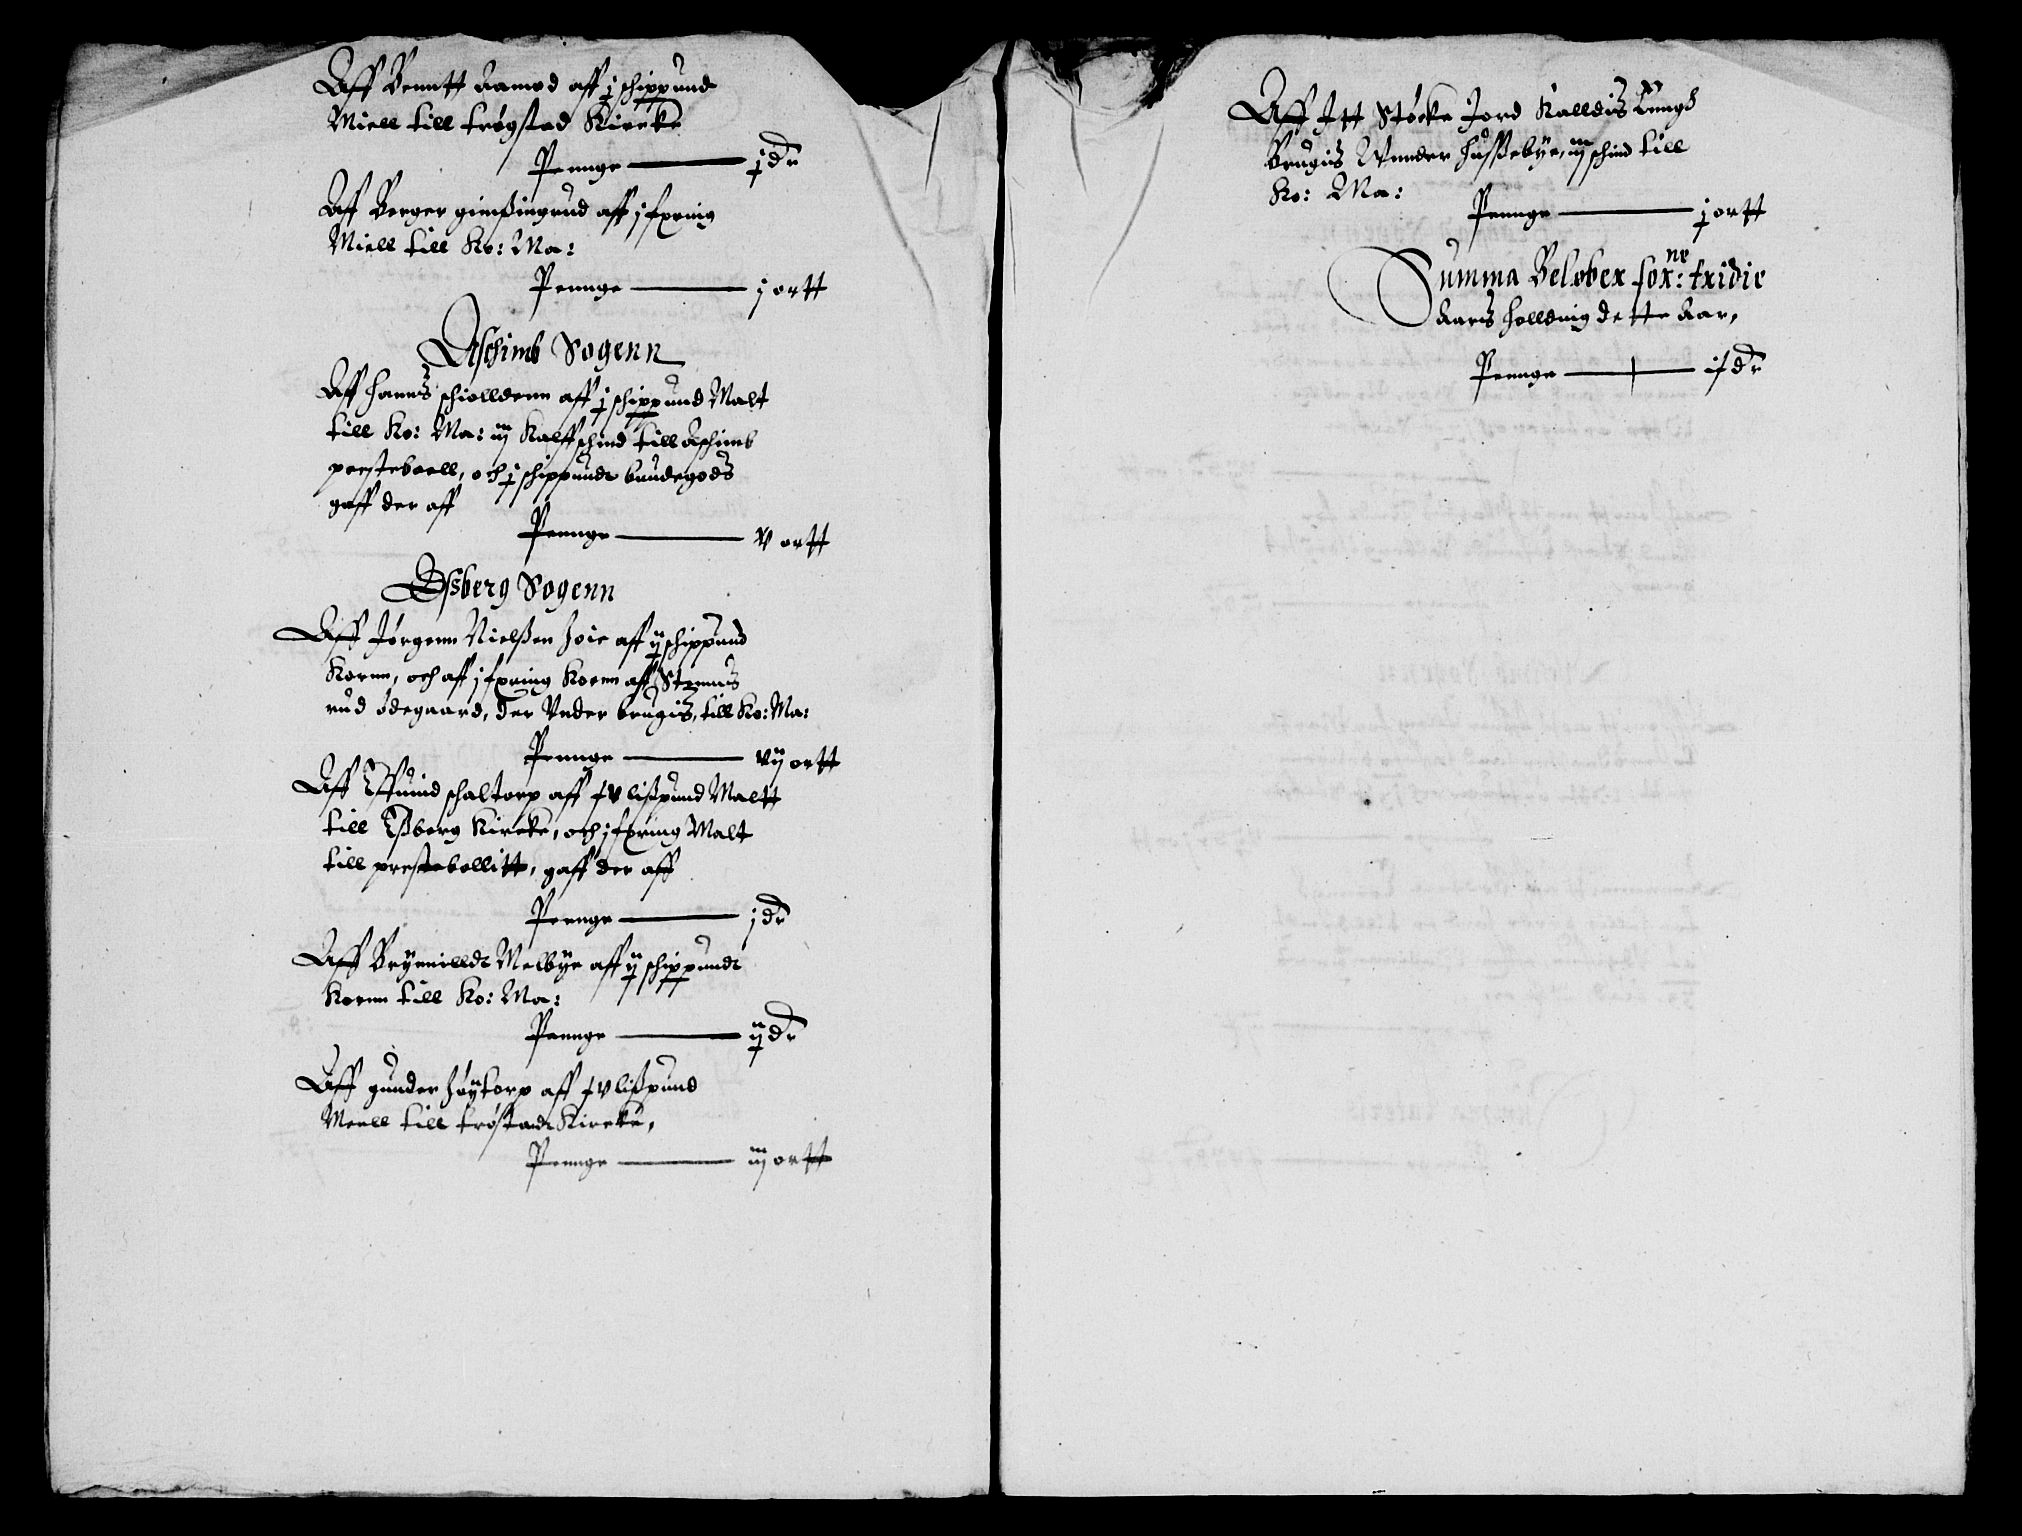 Aff Benntt Ramod aff j schippund
Miell till trøgstad Kircke
Pennge j dr
Aff Berger gimßingrud aff j fxring
Miell till Ko: Ma:
Pennge j ortt
Aschimb Sogenn
Aff hanns schiolldenn aff j schippund Malt
till Ko: Ma: iij Kalffschind till Aschimb
presteboell, och j schippundt bundegods
gaff der aff
Pennge v ortt
Eßberg Sogenn
Aff Jørgenn Nielßen hoie aff ij schippund
Kornn, och aff j fxring Kornn aff
rud ødegaard, der Vnder brugis, till Ko: Ma:
Pennge vij ortt
Aff schaltorp aff lißpund Maltt
till Eßberg Kircke, och j fxring Malt
till prestebollitt, gaff der aff
Pennge j dr
Aff Brynnilldt Melbye aff ij schippundt
Kornn till Ko: Ma:
Pennge ij dr
Aff gunder høytorp aff lißpund
Meell till trøstadt Kircke,
Pennge iij ortt
Aff Itt Støcke Jord Kalldis
Brugis Vnnder hußebye, iij schind till
Ko: Ma:
Pennge j ortt
Summa Beløber forne: tridie
Aars holldnig dette Aar,
Pennge dr